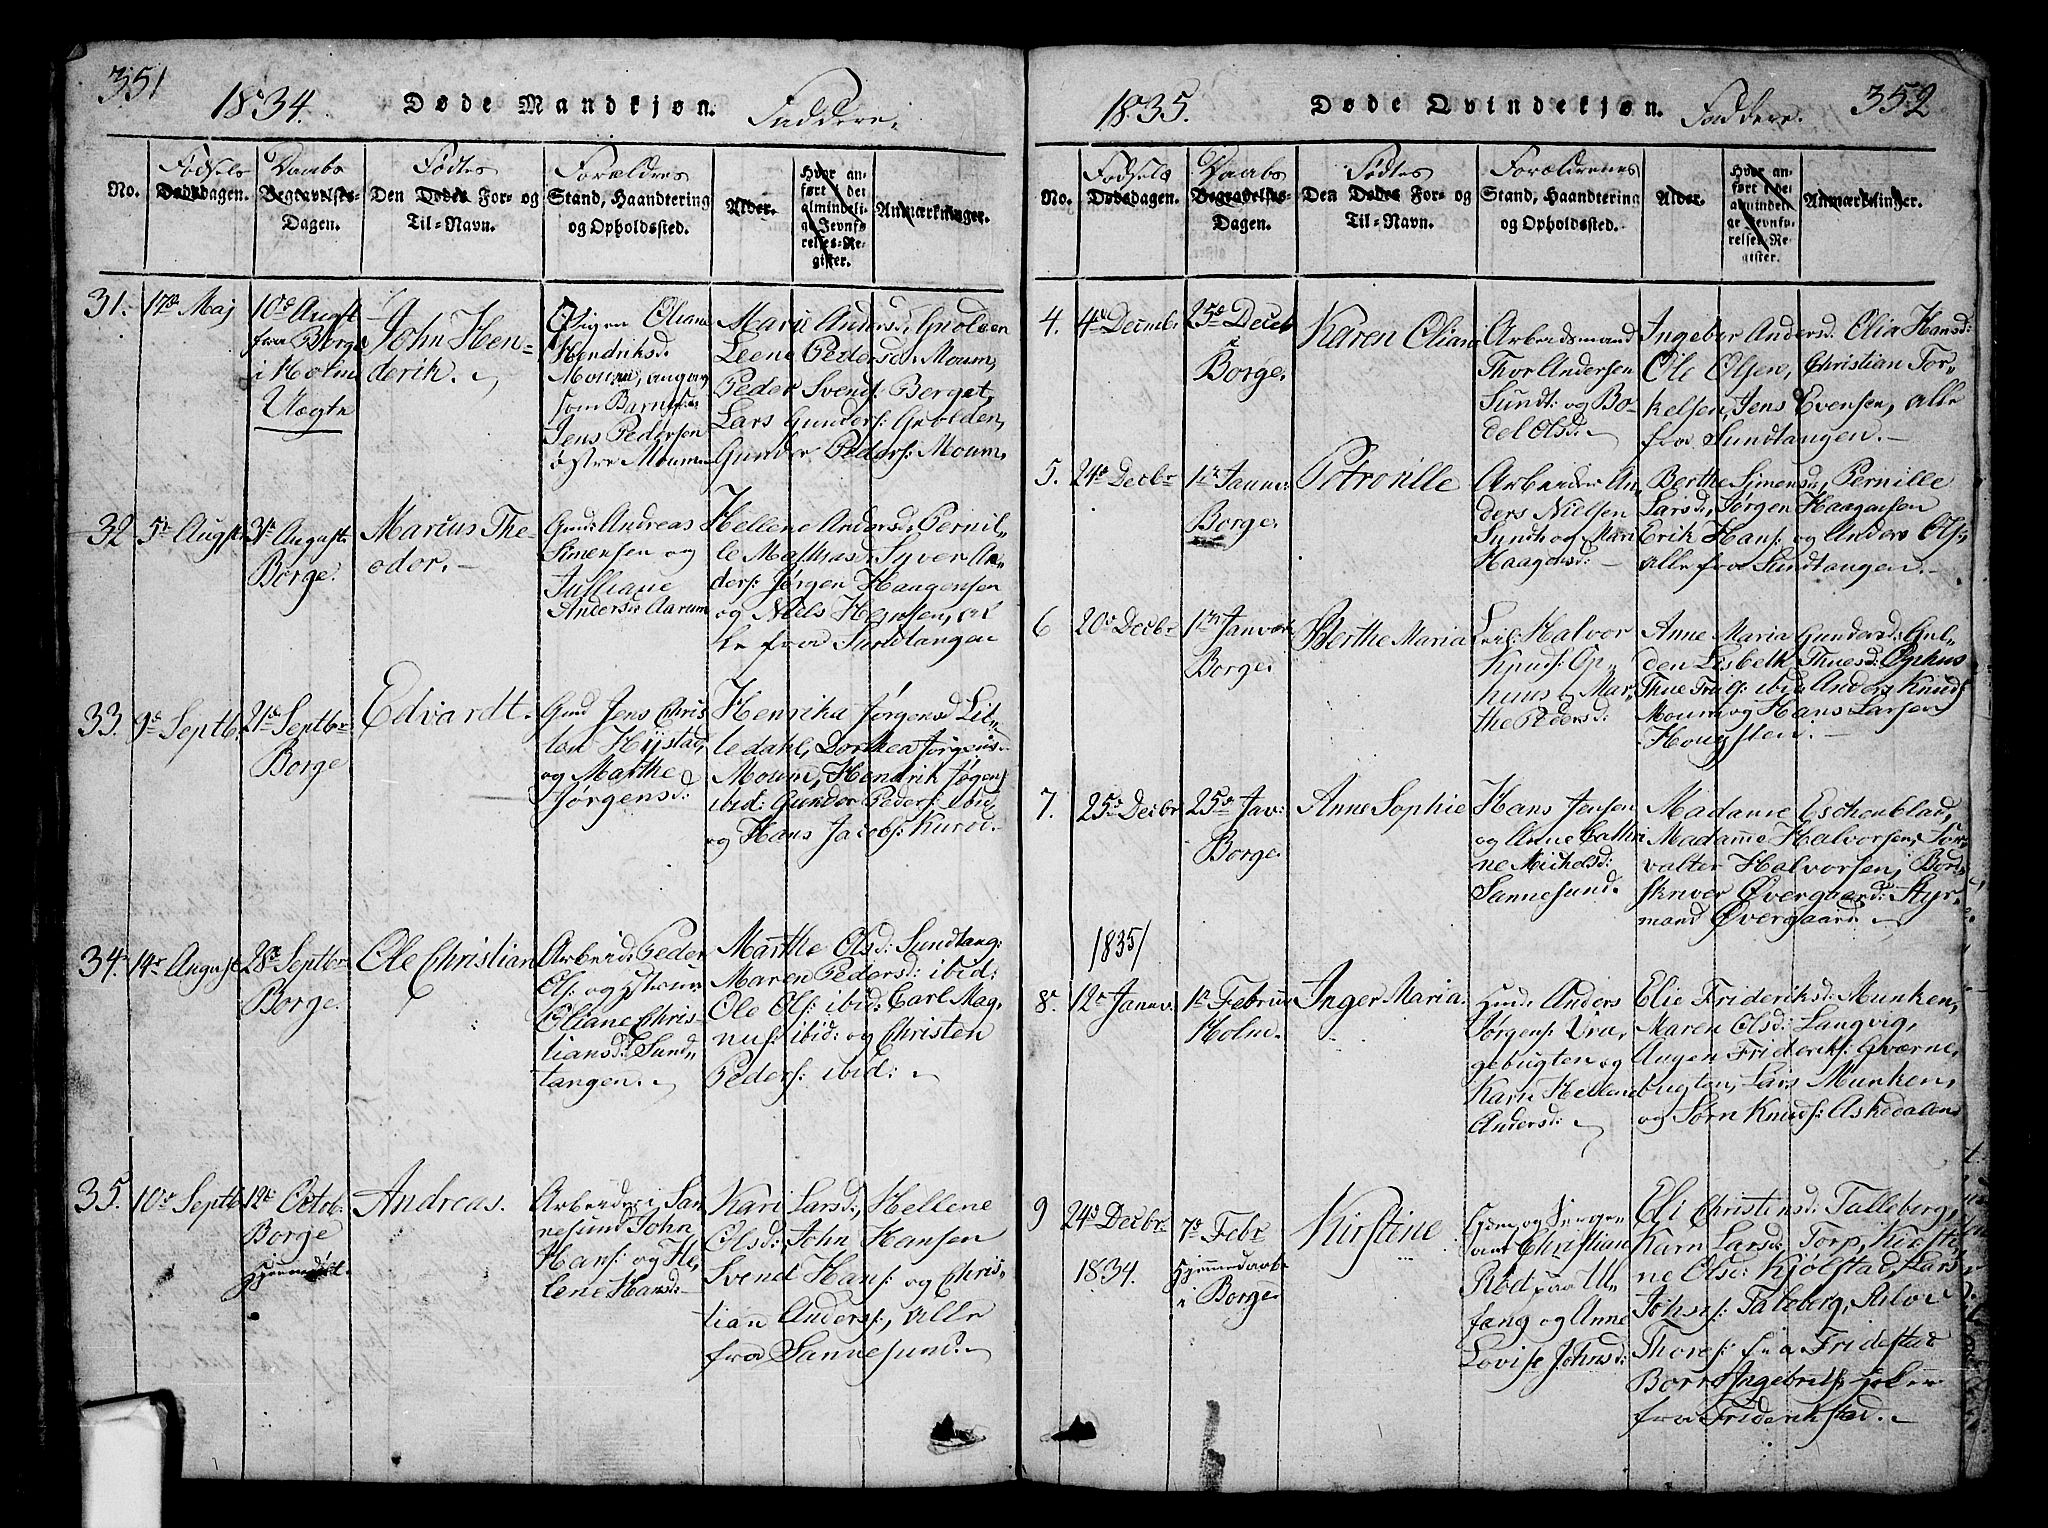 351
1834. Døde Mandkjøn. Faddere.
No. Fødsels Dødsdagen. Daabs Begravelses-Dagen. Fødtes Den Dødes For- og Til-Navn. Forældres Stand, Haandtering og Opholdssted. Alder. Hvor anført i det almindelige Jevnførelses-Register. Anmærkninger.
31. 17de Maj
10de Augst
fra Borge
i Holm
Uægte
John Hen-
derik.
Pigen Oliane
Hendriksd:
Moum, angav
som Barnef:
Jens Pedersen
østre Moum
Marie Andersd:
Leene Pedersd: Moum,
Peder Svends: Berget,
Lars Gunders:
Gunder Peders: Moum,
32 5te Augst
31te August
Borge.
Marcus The-
odor.
Gmd: Andreas
Simensen og
Julliane
Andersd: Aarum
Hellene Andersd: Pernil-
le Mathiasd: Syver An-
ders: Jørgen Haagensen
og Niels Hansen, al-
le fra Sundtangen
33. 9de Septb.
21de Septbr
Borge
Edvardt.
Gmd Jens Chris-
og Marthe
Jørgensd:
Henrika Jørgensd Lil-
ledahl, Dorthea Jørgensd.
Moum, Hendrik Jøgens
ibid: Gunder Peders: ibid,
og Hans Jacobs: Kurød.
34. 14de August
28de Septbr
Borge.
Ole Christian
Arbeid: Peder
Ols: og Hstrue
Oliane Chris-
tiansd: Sund-
tangen.
Marthe Olsd: Sundtang:
Maren Pedersd: ibid:
Ole Ols: ibid: Carl Mag-
nus: ibid: og Christen
Peders: ibid:
35. 10de Septb
12te Octob.
Borge
Hjemmedøbt.
Andreas.
Arbeider i San-
nesund John
Hans: og He-
lene Hansd:
Kari Larsd:, Hellene
Olsd: John Hansen
Svend Hans: og Chris-
tian Anders:, alle
fra Sannesund.
1835. Døde Qvindekjøn. Faddere. 352
No. Fødsels Dødsdagen. Daabs Begravelses-Dagen. Fødtes Den Dødes For- og Til-Navn. Forældrenes Stand, Haandtering og Opholdssted. Alder. Hvor anført i det almindelige Jevnførelses-Register. Anmærkninger.
4. 4de Decmbr
25de Decebr
Borge.
Karen Oliane
Arbeidsmand
Thor Andersen
Sundt: og Bo-
del Olsd:
Ingebor Andersd: Elia Hansd:
Ole Olsen, Christian Tor-
kelsen, Jens Evensen, alle
fra Sundtangen.
5. 24de Decbr
1ste Januar
Borge
Petronille
Arbeider An-
ders Nielsen
Sundt og Mari
Haagensd:
Berthe Simensd, Pernille
Larsd, Jørgen Haagensen
Erik Hans: og Anders Ols:
alle fra Sundtangen.
6 20de Decbr
1ste Janvar
Borge
Berthe Maria
Leil: Halvor
Knuds: Op-
huus og Mar-
the Pedersd:
Anne Maria Gundersd: Gul-
den Lisbeth Thuesd: Ophus
Thue Truls: ibid Anders Knuds
Moum og Hans Larsen
Hougsten.
7. 25de Decbr
25de Jav:
Borge
Anne Sophie
Hans Jensen
og Anne Cathri-
ne Michelsd:
Sannesund.
Madame Eschenblad,
Madamme Halvorsen, For-
valter Halvorsen, Bord-
skriver Øvergaard: Styr-
mand Øvergaard.
1835/
8. 12te Januv.
1ste Februar
Holm.
Inger Maria.
Gmd: Anders
Jørgens: Vra,
gebugten og
Karn Hellene
Andersd:
Elie Frideriksd: Munken,
Maren Olsd: Langvig,
Augen Friderik: Gværne-
bugten, Lars Munken,
og Sørn Knuds: Askedalen
9 24de Decbr
1834.
7de Febr
Hjemmedøbt
i Borge
Kirstine
Christiane
Rød paa Ul-
fang og Anne
Lovise Johnsd:
Eli Christensd: Talleberg,
Karn Larsd: Torp, Kirsti-
ne Olsd: Kjølstad, Lars
Johs: Taleberg, Salve
Thores: fra Fridestad
Ingebrets:
fra Friderikstad.